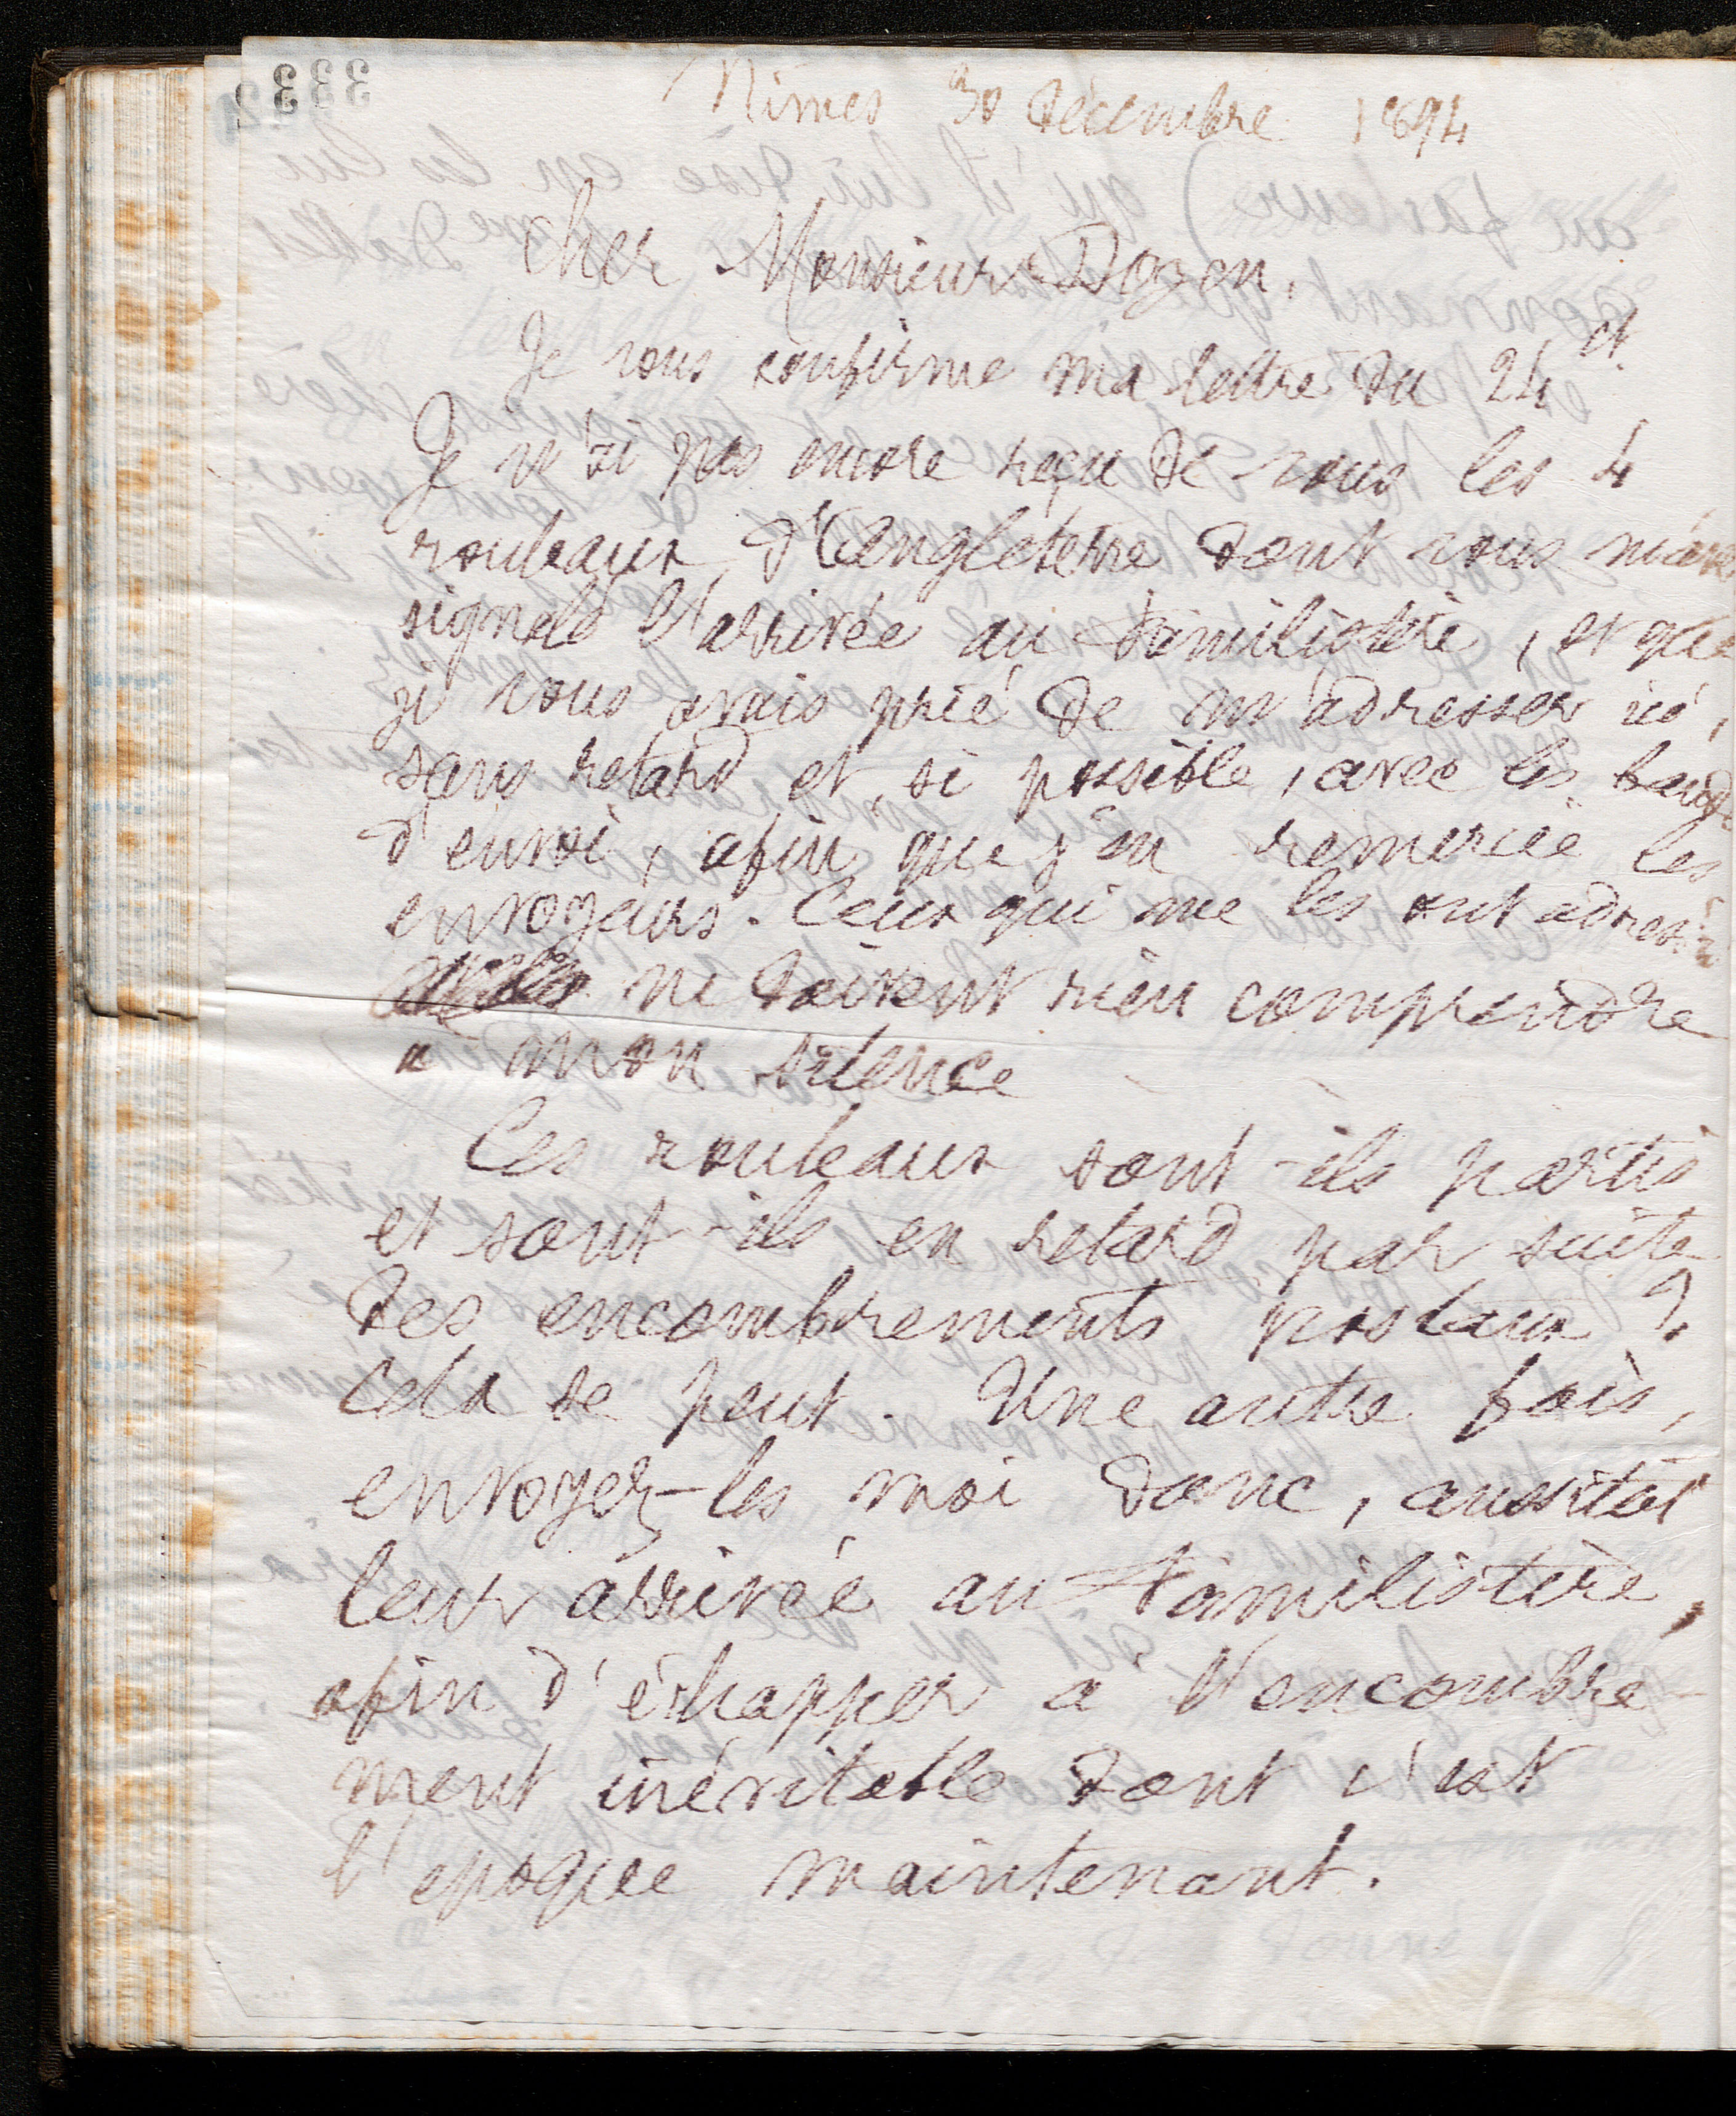 333
Nîmes 30 Décembre 1894
Cher Monsieur Doyen,
Je vous confirme ma lettre du 24 ct.
Je n'ai pas encore reçu de vous les 4
rouleaux d'Angleterre dont vous m'avez
signalé l'arrivée au Familistère, et que
je vous avais prié de m'adresser ici,
sans retard et, si possible, avec les bandes
d'envoi, afin que j'en remercie les
envoyeurs. Ceux qui me les ont adressés
ne doivent rien comprendre
à mon silence
Ces rouleaux sont-ils partis
et sont-ils en retard par suite
des encombrements postaux ?
Cela se peut. Une autre fois,
envoyez-les moi donc, aussitôt
leur arrivée au Familistère,
afin d'échapper à l'encombre-
ment inévitable dont c'est
l'époque maintenant.